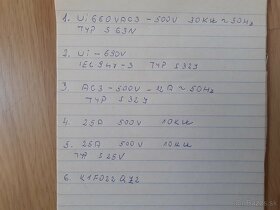 1. Ui 660V AC3 - 500V 30KW ≈ 50Hz
TYP S 63N
2. Ui - 690V
IEC 947-3 TYP S32J
3. AC3 - 500V - 12A ≈ 50Hz
TYP S32J
4. 25A 500V 10KW
5. 25A 500V 10KW
TYP S25V
6.